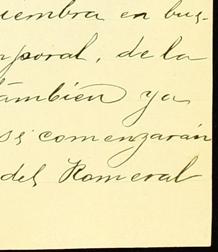 iembra en bus-
mporal, de la
también ya
si comenzarán
del Romeral